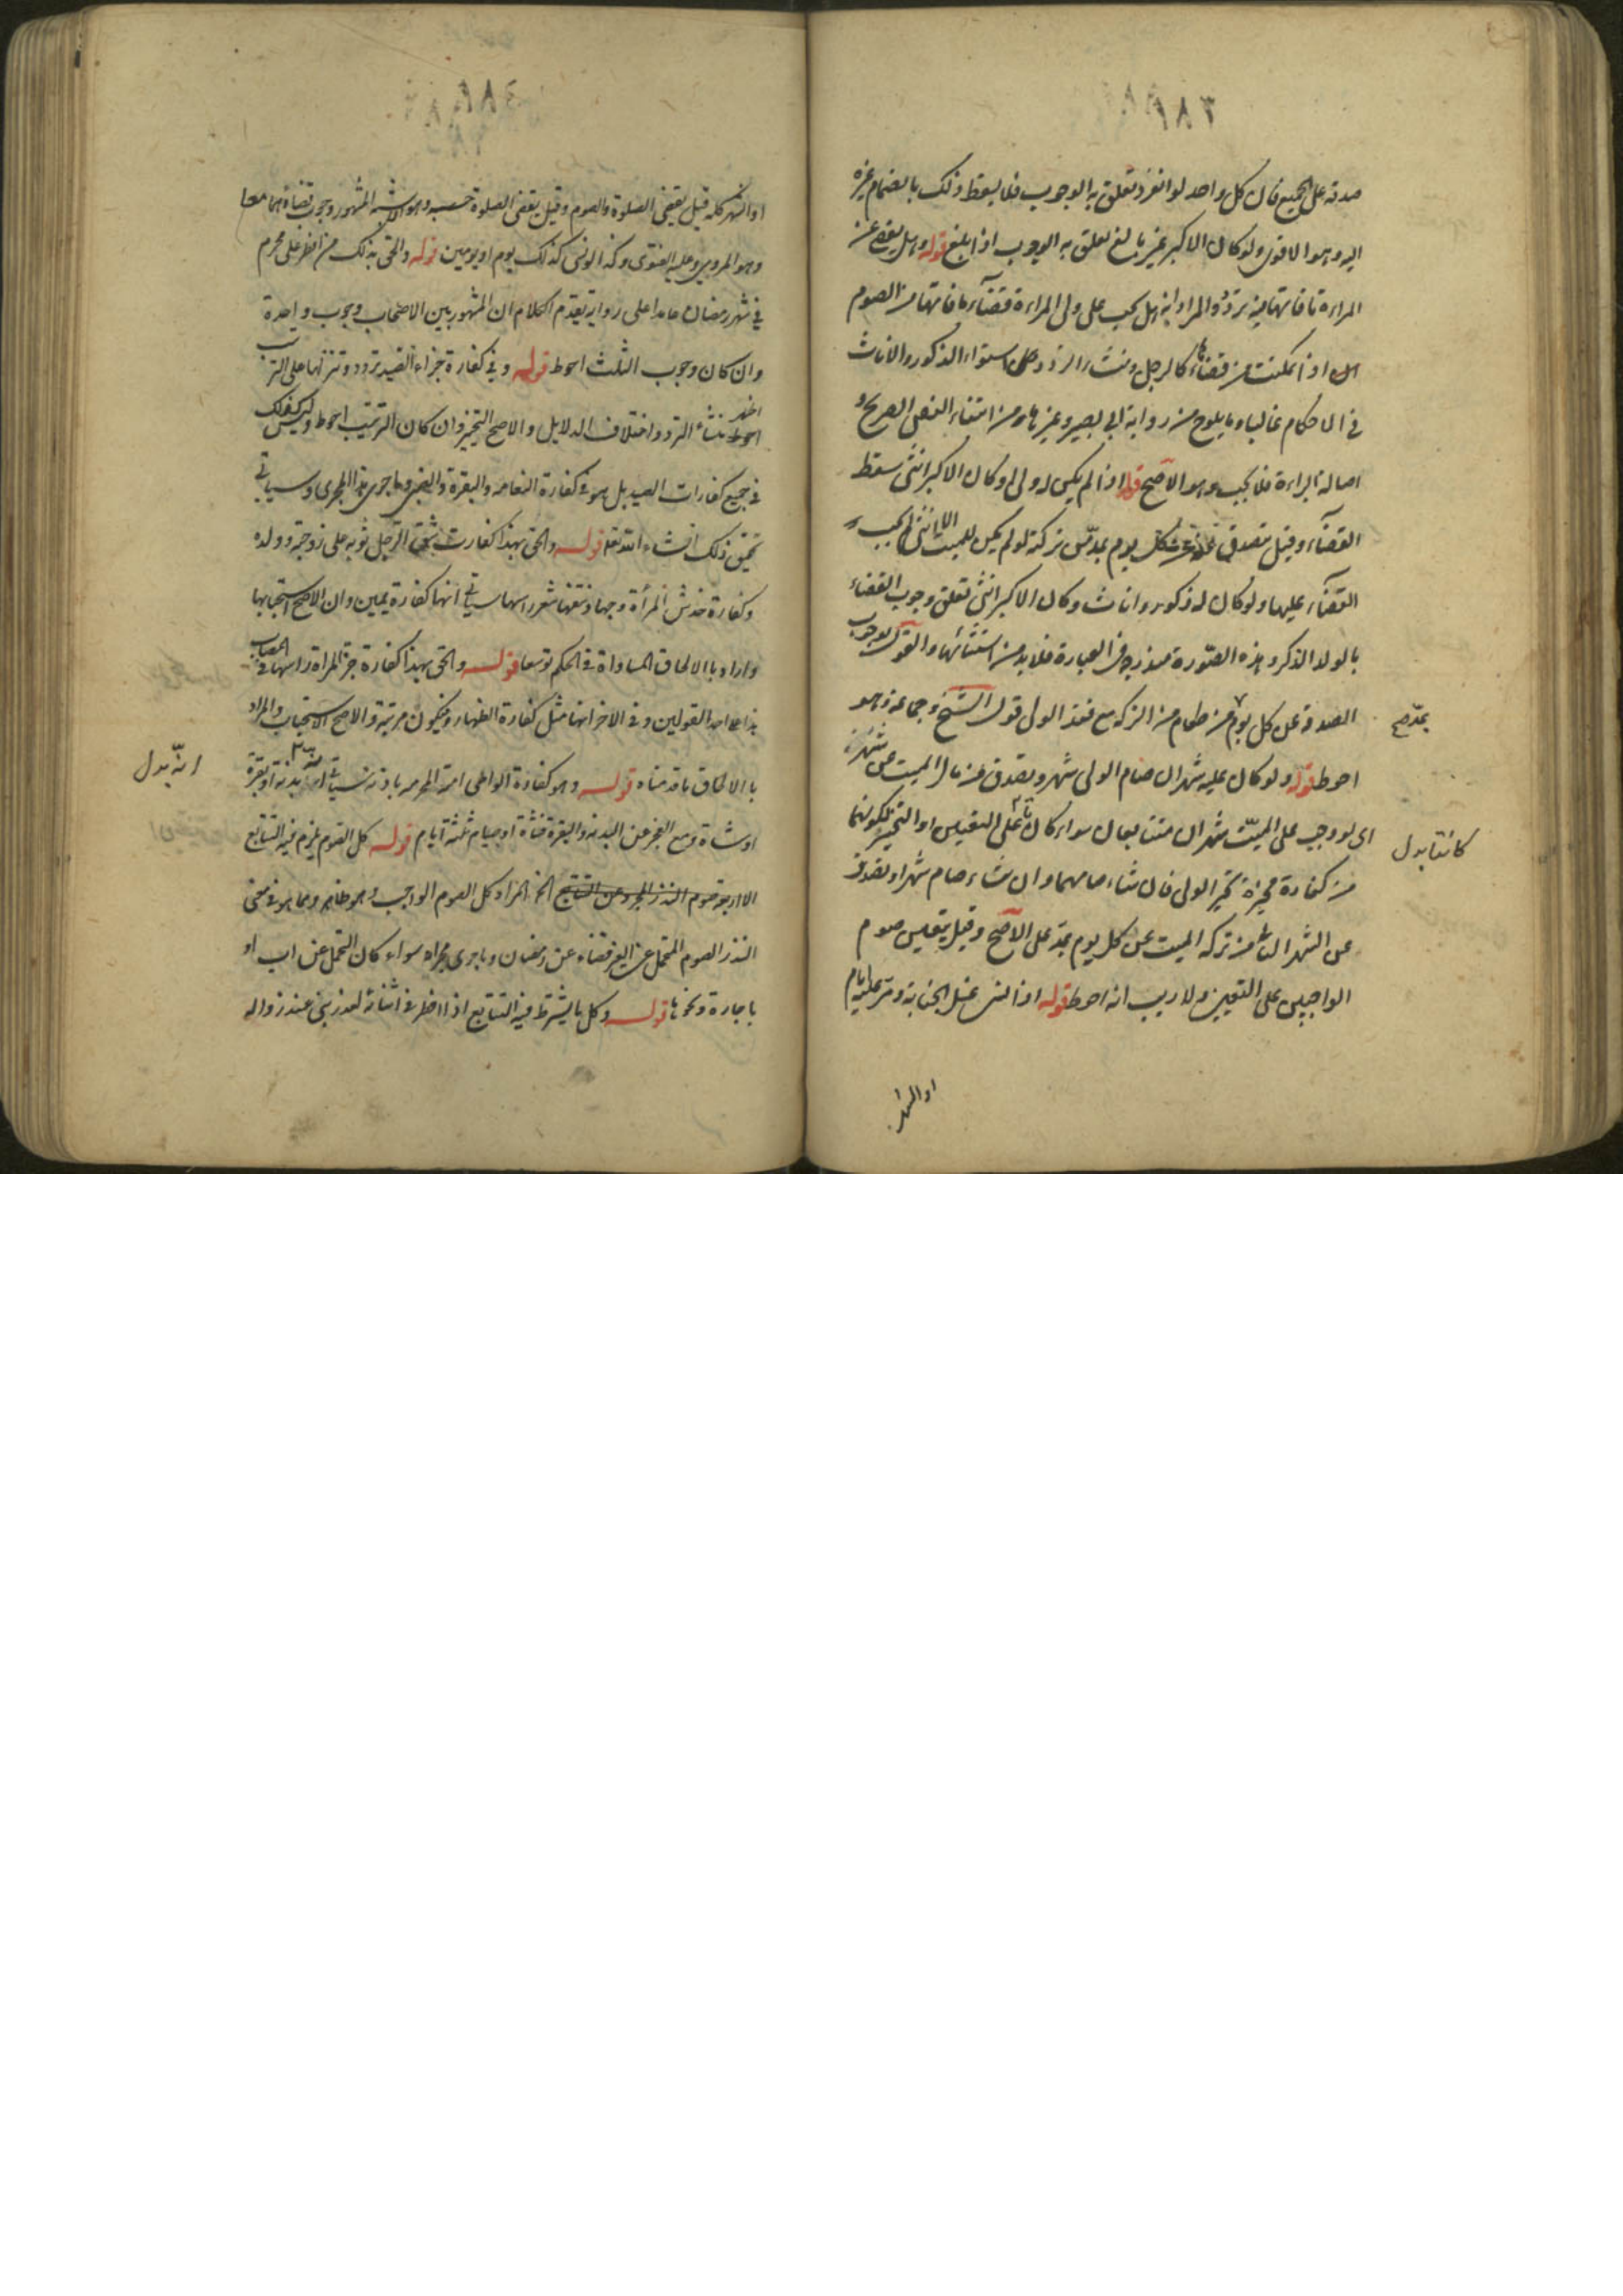 ٣٨٣
صدقه على الجميع فان كل واحد لو انفرد تعلق به الوجوب فلا يسقط ذلك بانضمام غيره
اليه وهو الاقوى ولو كان الاكبر غير بالغ تعلق به الوجوب اذا بلغ قوله وهل يقضى عن
المراة ما فاتها فيه تردد والمراد انه هل يجب على ولى المراءة قضاء ما فاتها من الصوم
اذا تمكنت من قضائه كالرجل ومنشاء التردد من استواء الذكور والاناث
فى الاحكام غالبا وما يلوح من رواية ابى بصير وغيرها ومن انتفاء النص الصريح و
اصالة البراءة فلا يجب وهو الاصح قوله اذا لم يكن له ولى او كان الاكبر انثى سقط
القضاء وقيل يتصدق عنه عن كل يوم بمد من تركته لو لم يكن للميت الا انثى لم يجب
القضاء عليها ولو كان له ذكور واناث وكان الاكبر انثى تعلق وجوب القضاء
بالولد الذكر وهذه الصورة مندرجة فى العبارة فلا بد من استثنائها والقول بوجوب
الصدقة عن كل يوم من طعام من التركة مع فقد الولى قول الشيخ وجماعة وهو
بمد صح
احوط قوله ولو كان عليه شهران صام الولى شهرا وتصدق عن مال الميت عن شهر
اى لو وجب على الميت شهران متتابعان سواء كان على التعيين او التخيير لكونهما
كانتا بدل
من كفارة مخيرة تخير الولى فان شاء صامهما وان شاء صام شهرا وتصدق
عن الشهر الثانى من تركة الميت عن كل يوم بمد على الاصح وقيل يتعين صوم
الواجبين على التعيين ولا ريب انه احوط قوله اذا نسى غسل الجنابة ومر عليه ايام
او الشهر
٣٨٤
او الشهر كله قيل يقضى الصلوة والصوم وقيل يقضى الصلوة حسب وهو الاشبه المشهور وجوب قضائهما معا
وهو المروى وعليه الفتوى وكذا لو نسى كذلك يوم او يومين قوله والحق بذلك من افطر على محرم
فى شهر رمضان عامدا على رواية تقدم الكلام ان المشهور بين الاصحاب وجوب واحدة
وان كان وجوب الثلث احوط قوله وفى كفارة جزاء الصيد تردد وتنزيلها على الترتيب
اظهر
احوط منشاء التردد اختلاف الدلايل والاصح التخيير وان كان الترتيب احوط وليس كذلك
فى جميع كفارات الصيد بل هو فى كفارة النعامة والبقرة والظبى وما جرى هذا المجرى وسياتى
تحقيق ذلك انشاء الله تعا قوله والحق بهذا كفارت شق الرجل ثوبه على زوجته وولده
وكفارة خدش المرأة وجهها ونتفها شعر راسها سياتى انها كفارة يمين وان الاصح استحبابها
واراد بالالحاق المساواة فى الحكم توسعا قوله والحق بهذا كفارة جز المراة راسها فى المصاب
هذا احد القولين وفى الاخر انها مثل كفارة الظهار فيكون مرتبة والاصح الاستحباب والمراد
بالالحاق ما قدمناه قوله وهو كفارة الواطى امته المحرمة باذنه سياتى انها بدنة او بقرة
انه بدل
او شاة ومع العجز عن البدنة والبقرة فشاة او صيام ثلثة ايام قوله كل الصوم يلزم فيه التتابع
الا اربعة صوم النذر المجرد عن التتابع الخ المراد كل الصوم الواجب وهو ظاهر ومما هو فى معنى
النذر الصوم المتحمل عن الغير قضاء عن رمضان وما جرى مجراه سواء كان التحمل عن اب او
باجارة ونحوها قوله وكل ما يشترط فيه التتابع اذا افطر فى اثنائه لعذر بنى عند زواله